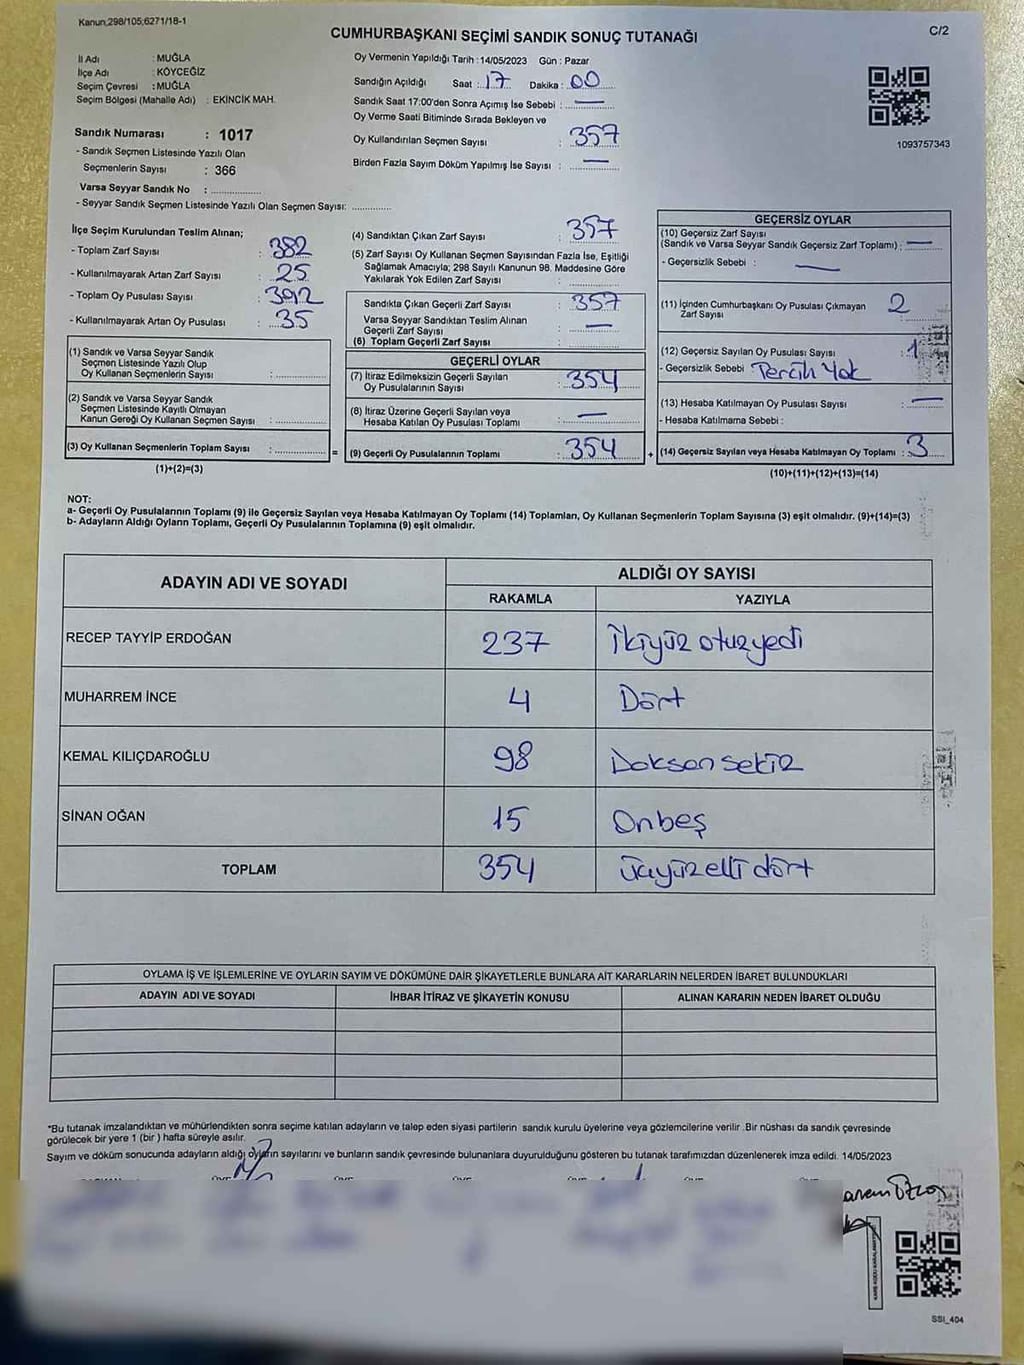 Kanun,298/105,6271/18-1
CUMHURBAŞKANI SEÇİMİ SANDIK SONUÇ TUTANAĞI
C/2
İl Adı : MUĞLA
İlçe Adı : KÖYCEĞİZ
Seçim Çevresi : MUĞLA
Seçim Bölgesi (Mahalle Adı) : EKİNCİK MAH.
Sandık Numarası : 1017
- Sandık Seçmen Listesinde Yazılı Olan
Seçmenlerin Sayısı : 366
Varsa Seyyar Sandık No :
- Seyyar Sandık Seçmen Listesinde Yazılı Olan Seçmen Sayısı:
Oy Vermenin Yapıldığı Tarih : 14/05/2023 Gün : Pazar
Sandığın Açıldığı Saat : 17 Dakika : 00
Sandık Saat 17:00'den Sonra Açımış İse Sebebi : —
Oy Verme Saati Bitiminde Sırada Bekleyen ve
Oy Kullandırılan Seçmen Sayısı : 357
Birden Fazla Sayım Döküm Yapılmış İse Sayısı : —
1093757343
İlçe Seçim Kurulundan Teslim Alınan;
- Toplam Zarf Sayısı : 382
- Kullanılmayarak Artan Zarf Sayısı : 25
- Toplam Oy Pusulası Sayısı : 392
- Kullanılmayarak Artan Oy Pusulası : 35
(1) Sandık ve Varsa Seyyar Sandık
Seçmen Listesinde Yazılı Olup
Oy Kullanan Seçmenlerin Sayısı :
(2) Sandık ve Varsa Seyyar Sandık
Seçmen Listesinde Kayıtlı Olmayan
Kanun Gereği Oy Kullanan Seçmen Sayısı :
(3) Oy Kullanan Seçmenlerin Toplam Sayısı : =
(1)+(2)=(3)
(4) Sandıktan Çıkan Zarf Sayısı : 357
(5) Zarf Sayısı Oy Kullanan Seçmen Sayısından Fazla İse, Eşitliği
Sağlamak Amacıyla; 298 Sayılı Kanunun 98. Maddesine Göre
Yakılarak Yok Edilen Zarf Sayısı :
Sandıkta Çıkan Geçerli Zarf Sayısı : 357
Varsa Seyyar Sandıktan Teslim Alınan
Geçerli Zarf Sayısı : —
(6) Toplam Geçerli Zarf Sayısı :
GEÇERLİ OYLAR
(7) İtiraz Edilmeksizin Geçerli Sayılan
Oy Pusulalarının Sayısı : 354
(8) İtiraz Üzerine Geçerli Sayılan veya
Hesaba Katılan Oy Pusulası Toplamı : —
(9) Geçerli Oy Pusulalarının Toplamı : 354 +
GEÇERSİZ OYLAR
(10) Geçersiz Zarf Sayısı
(Sandık ve Varsa Seyyar Sandık Geçersiz Zarf Toplamı) : —
- Geçersizlik Sebebi : —
(11) İçinden Cumhurbaşkanı Oy Pusulası Çıkmayan
Zarf Sayısı : 2
(12) Geçersiz Sayılan Oy Pusulası Sayısı : 1
- Geçersizlik Sebebi Tercih Yok
(13) Hesaba Katılmayan Oy Pusulası Sayısı : —
- Hesaba Katılmama Sebebi :
(14) Geçersiz Sayılan veya Hesaba Katılmayan Oy Toplamı : 3
(10)+(11)+(12)+(13)=(14)
NOT:
a- Geçerli Oy Pusulalarının Toplamı (9) ile Geçersiz Sayılan veya Hesaba Katılmayan Oy Toplamı (14) Toplamları, Oy Kullanan Seçmenlerin Toplam Sayısına (3) eşit olmalıdır. (9)+(14)=(3)
b- Adayların Aldığı Oyların Toplamı, Geçerli Oy Pusulalarının Toplamına (9) eşit olmalıdır.
ADAYIN ADI VE SOYADI
ALDIĞI OY SAYISI
RAKAMLA YAZIYLA
RECEP TAYYİP ERDOĞAN 237 İkiyüz otuzyedi
MUHARREM İNCE 4 Dört
KEMAL KILIÇDAROĞLU 98 Doksan sekiz
SİNAN OĞAN 15 Onbeş
TOPLAM 354 Üçyüzelli dört
OYLAMA İŞ VE İŞLEMLERİNE VE OYLARIN SAYIM VE DÖKÜMÜNE DAİR ŞİKAYETLERLE BUNLARA AİT KARARLARIN NELERDEN İBARET BULUNDUKLARI
ADAYIN ADI VE SOYADI İHBAR İTİRAZ VE ŞİKAYETİN KONUSU ALINAN KARARIN NEDEN İBARET OLDUĞU
*Bu tutanak imzalandıktan ve mühürlendikten sonra seçime katılan adayların ve talep eden siyasi partilerin sandık kurulu üyelerine veya gözlemcilerine verilir .Bir nüshası da sandık çevresinde
görülecek bir yere 1 (bir ) hafta süreyle asılır.
Sayım ve döküm sonucunda adayların aldığı oyların sayılarını ve bunların sandık çevresinde bulunanlara duyurulduğunu gösteren bu tutanak tarafımızdan düzenlenerek imza edildi. 14/05/2023
SSI_404